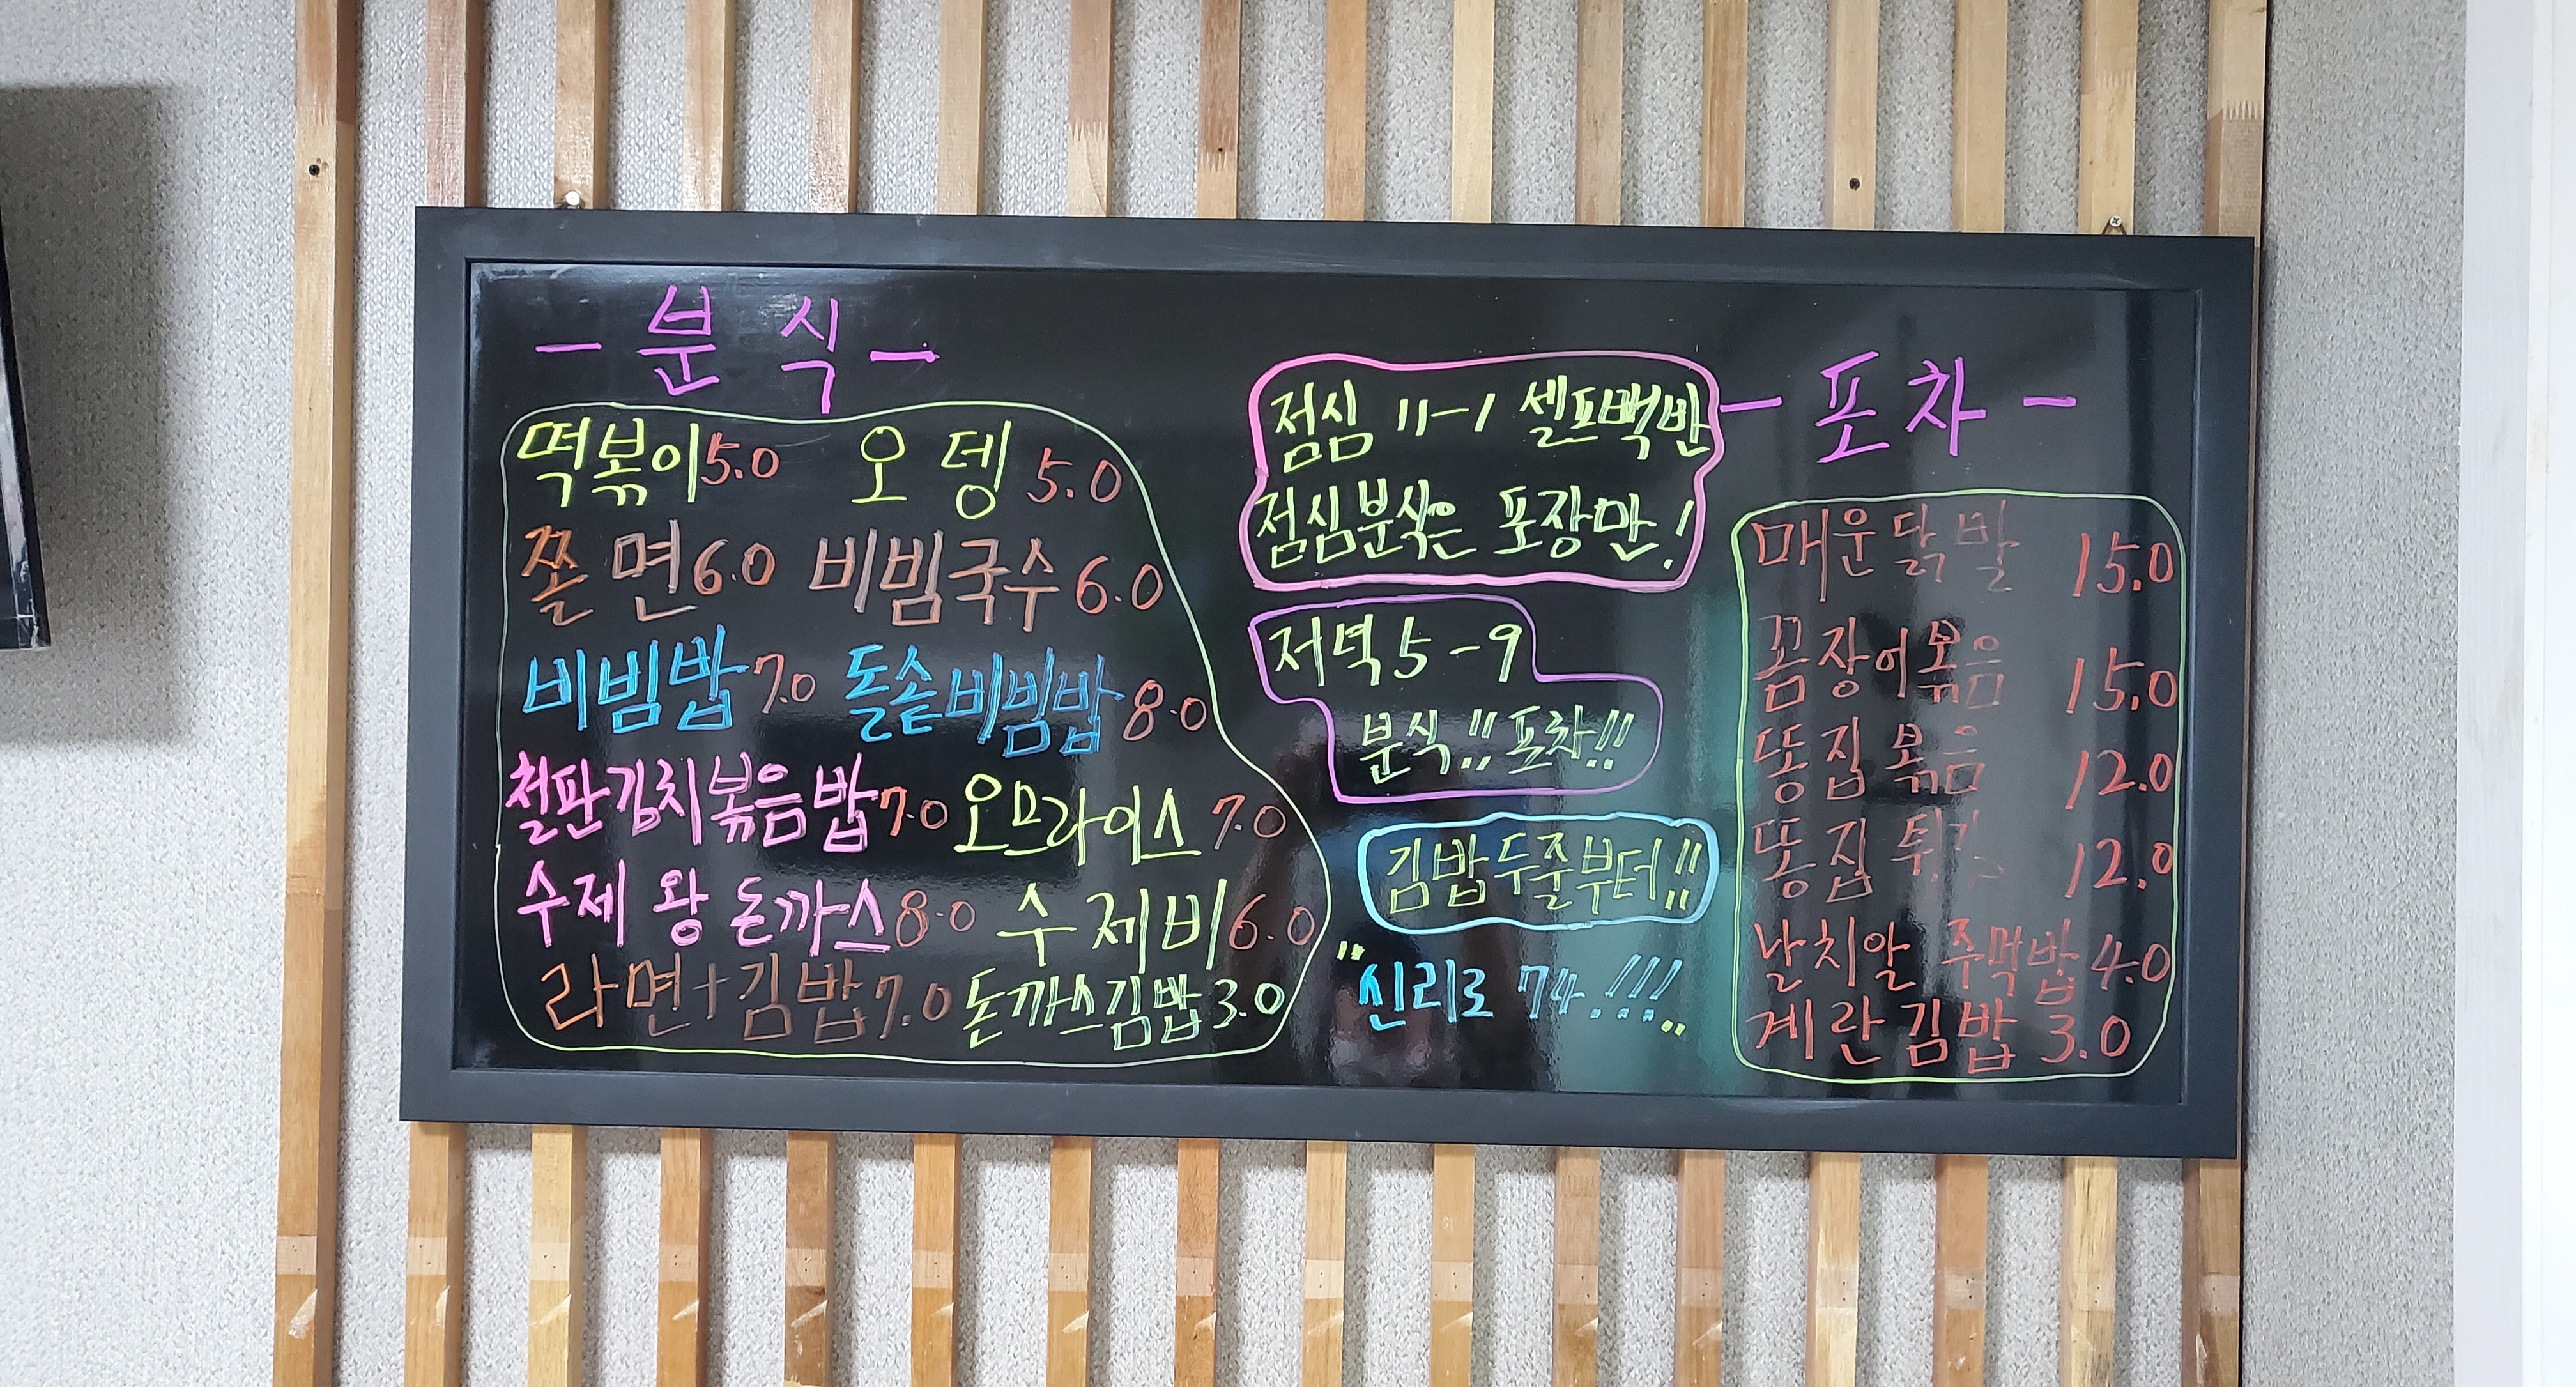 - 분식 -
떡볶이 5.0 오뎅 5.0
쫄면 6.0 비빔국수 6.0
비빔밥 7.0 돌솥비빔밥 8.0
철판김치볶음밥 7.0 오므라이스 7.0
수제 왕 돈까스 8.0 수제비 6.0
라면+김밥 7.0 돈까스김밥 3.0
점심 11-1 셀프백반
점심분식은 포장만!
저녁 5-9
분식!! 포차!!
김밥두줄부터!!
"신리로 74.!!!"
- 포차 -
매운닭발 15.0
꼼장어볶음 15.0
똥집볶음 12.0
똥집튀김 12.0
날치알 주먹밥 4.0
계란김밥 3.0